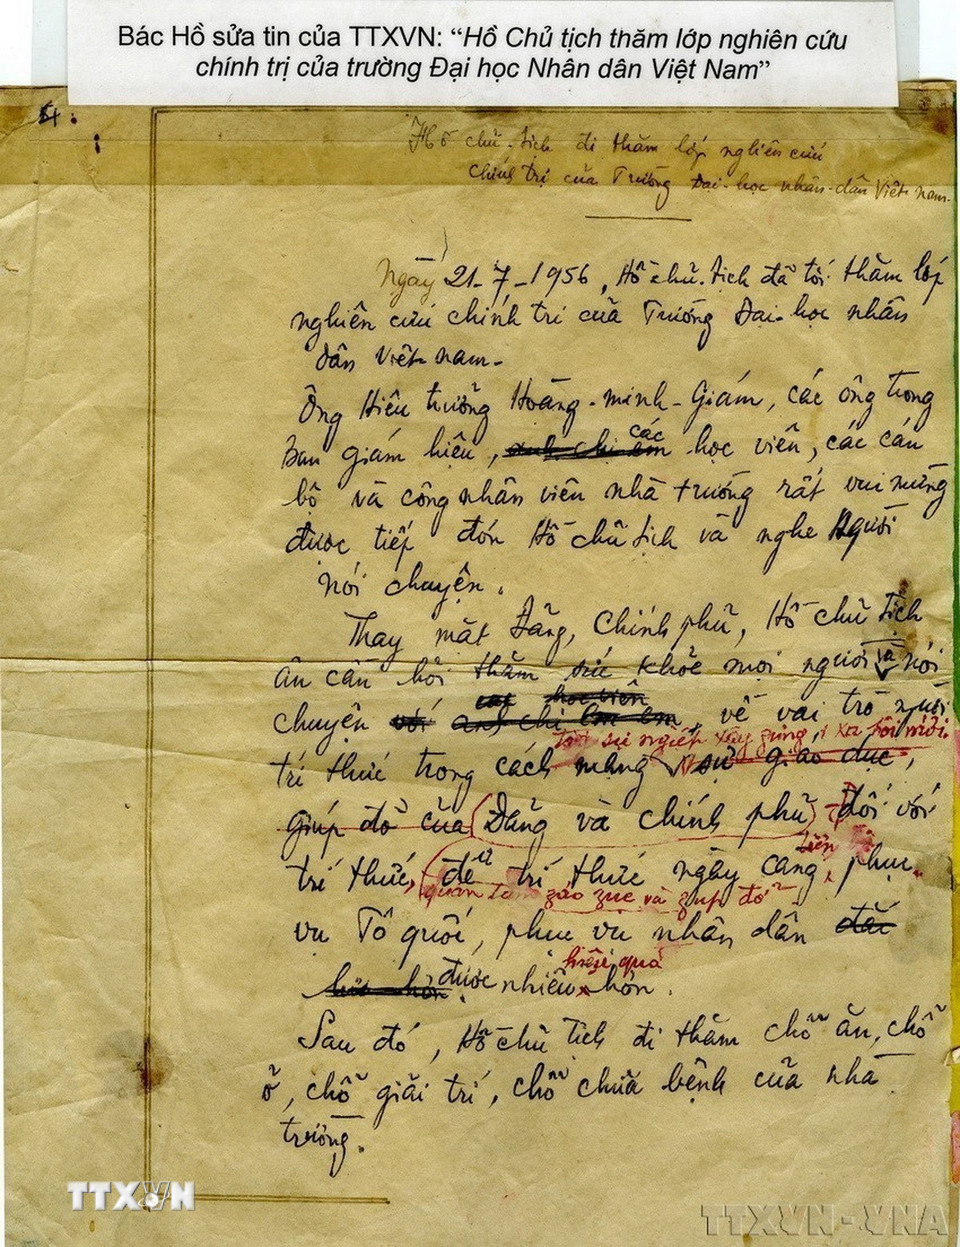 Bác Hồ sửa tin của TTXVN: “Hồ Chủ tịch thăm lớp nghiên cứu
chính trị của trường Đại học Nhân dân Việt Nam”
Hồ chủ-tịch đi thăm lớp nghiên cứu
chính trị của Trường Đại-học nhân-dân Việt-nam-
Ngày 21-7-1956, Hồ chủ-tịch đã tới thăm lớp
nghiên cứu chính trị của Trường Đại-học nhân
dân Việt-nam-
Ông Hiệu trưởng Hoàng-minh-Giám, các ông trong
các
Ban giám hiệu, anh chị em học viên, các cán
bộ và công nhân viên nhà trường rất vui mừng
được tiếp đón Hồ chủ tịch và nghe Người
nói chuyện.
Thay mặt Đảng, Chính phủ, Hồ chủ tịch
ân cần hỏi thăm sức khỏe mọi người và nói
các học viên
chuyện với anh chị em, về vai trò người
tới sự nghiệp xây dựng xã hội mới.
trí thức trong cách mạng sự giáo dục,
giúp đỡ của Đảng và chính phủ đối với
tiến bộ
trí thức, để trí thức ngày càng phục
quan tâm záo zục và zúp đỡ
vụ Tổ quốc, phục vụ nhân dân đắc
hiệu quả
được nhiều hơn.
Sau đó, Hồ chủ tịch đi thăm chỗ ăn, chỗ
ở, chỗ giải trí, chỗ chữa bệnh của nhà
trường.
TTXVN
TTXVN-VNA